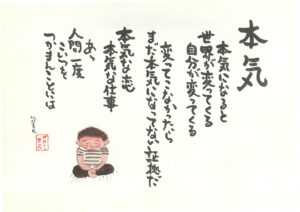 本気
本気になると
世界が変ってくる
自分が変ってくる
変ってこなかったら
まだ本気になってない証拠だ
本気な恋
本気な仕事
あゝ
人間一度
こいつを
つかまんことには